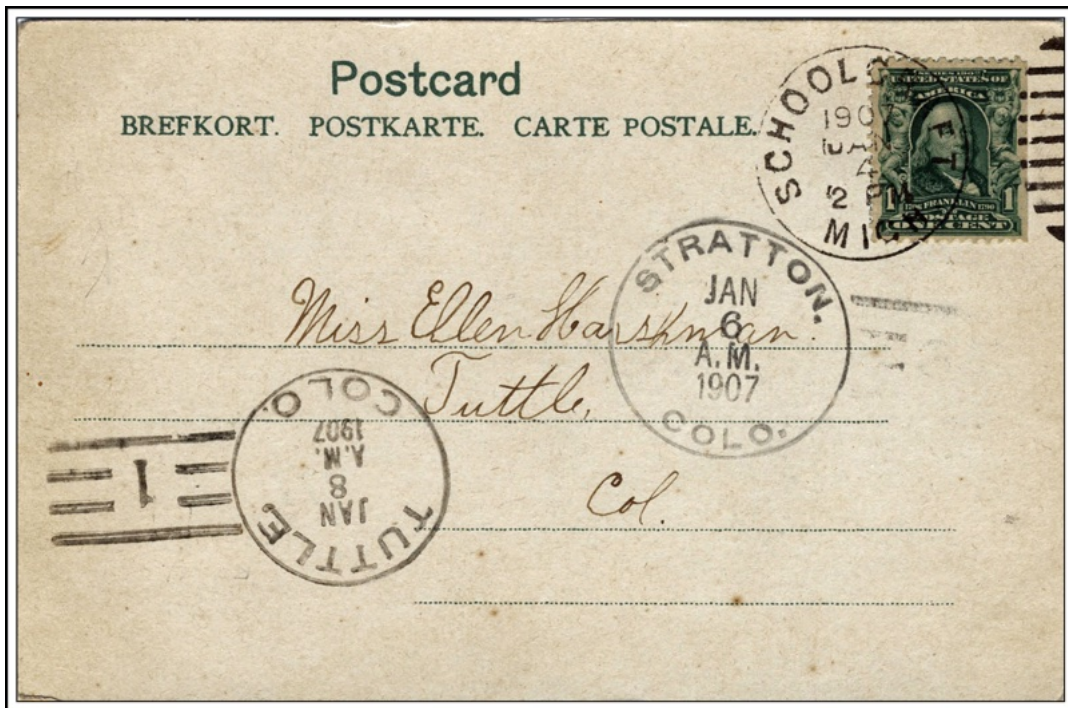 Postcard
BREFKORT. POSTKARTE. CARTE POSTALE.
SCHOOLCRAFT
1907
JAN
4
2 PM
MICH
SERIES 1902
UNITED STATES OF
AMERICA
1 1
1706 FRANKLIN 1790
POSTAGE
ONE CENT
STRATTON.
JAN
6
A.M.
1907
COLO.
Miss Ellen Harshman.
Tuttle,
Col.
TUTTLE
JAN
8
A.M.
1907
COLO.
1